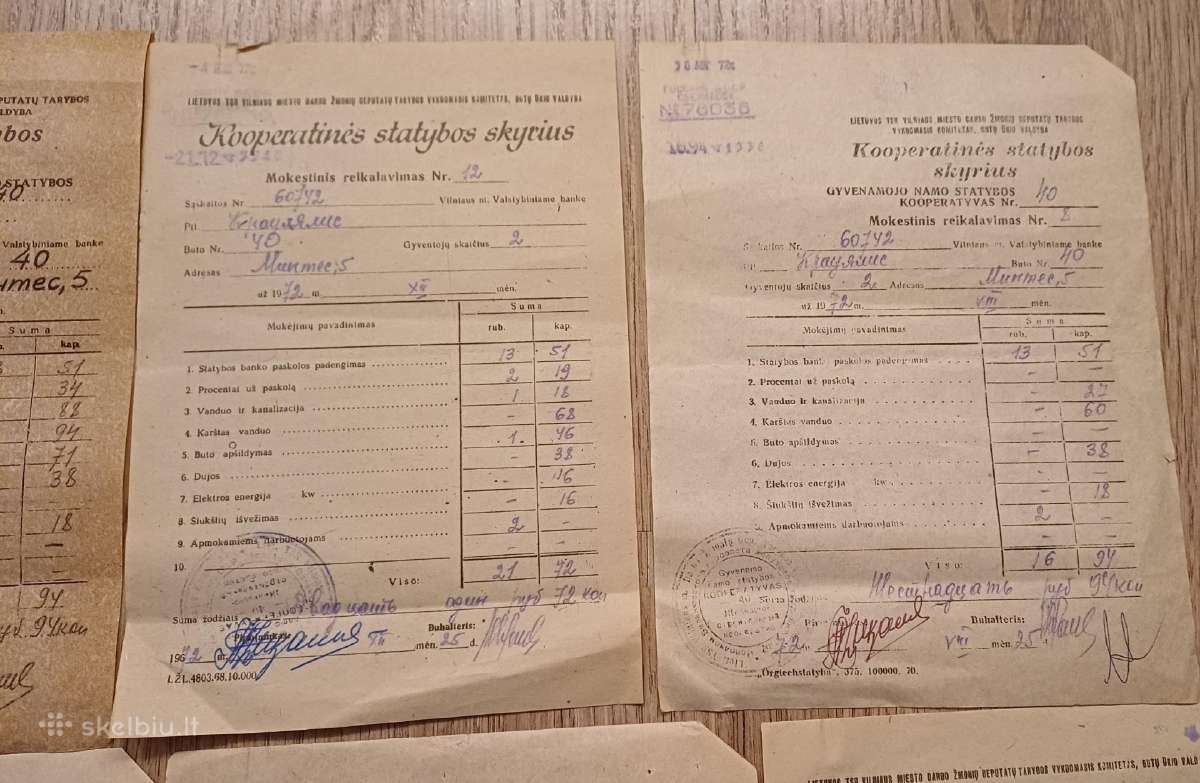 EPUTATŲ TARYBOS
LDYBA
ybos
STATYBOS
40
Valstybiniame banke
40
нтес, 5
Suma
kap.
51
34
88
94
71
38
18
—
94
руб. 94 коп
LIETUVOS TSR VILNIAUS MIESTO DARBO ŽMONIŲ DEPUTATŲ TARYBOS VYKDOMASIS KOMITETAS, BUTŲ ŪKIO VALDYBA
Kooperatinės statybos skyrius
Mokestinis reikalavimas Nr. 12
Sąskaitos Nr 60742 Vilniaus m. Valstybiniame banke
Pil Краулялис
Buto Nr. 40 Gyventojų skaičius 2
Adresas Минтес, 5
už 1972 m. XII mėn.
Mokėjimų pavadinimas Suma
rub. kap.
1. Statybos banko paskolos padengimas 13 51
2. Procentai už paskolą 2 19
3. Vanduo ir kanalizacija 1 18
4. Karštas vanduo - 68
5. Buto apšildymas 1 46
6. Dujos - 38
7. Elektros energija kw - 16
8. Šiukšlių išvežimas - 16
9. Apmokamiems darbuotojams 2 -
10. - -
Viso: 21 72
Suma žodžiais Двадцать один руб 72 коп
Pirmininkas Buhalteris:
1972 m. mėn. 25 d.
LŽL.4803.68.10.000
30
№ 76036
LIETUVOS TSR VILNIAUS MIESTO DARBO ŽMONIŲ DEPUTATŲ TARYBOS
VYKDOMASIS KOMITETAS, BUTŲ ŪKIO VALDYBA
Kooperatinės statybos
skyrius
GYVENAMOJO NAMO STATYBOS
KOOPERATYVAS Nr. 40
Mokestinis reikalavimas Nr. 8
Sąskaitos Nr. 60742 Vilniaus m. Valstybiniame banke
Pil. Краулялис Buto Nr. 40
Gyventojų skaičius 2 Adresas Минтес, 5
už 1972 m. VIII mėn.
Mokėjimų pavadinimas Suma
rub. kap.
1. Statybos banko paskolos padengimas 13 51
2. Procentai už paskolą - -
3. Vanduo ir kanalizacija - 27
4. Karštas vanduo - 60
5. Buto apšildymas - -
6. Dujos - 38
7. Elektros energija kw. - -
8. Šiukšlių išvežimas - 18
9. Apmokamiems darbuotojams 2 -
- -
Viso: 16 94
Шестнадцать руб 94 коп
Buhalteris:
72 m. VIII mėn. 25
„Orgtechstatyba", 375. 100000. 70.
skelbiu.lt
LIETUVOS TSR VILNIAUS MIESTO DARBO ŽMONIŲ DEPUTATŲ TARYBOS VYKDOMASIS KOMITETAS, BUTŲ ŪKIO VALD